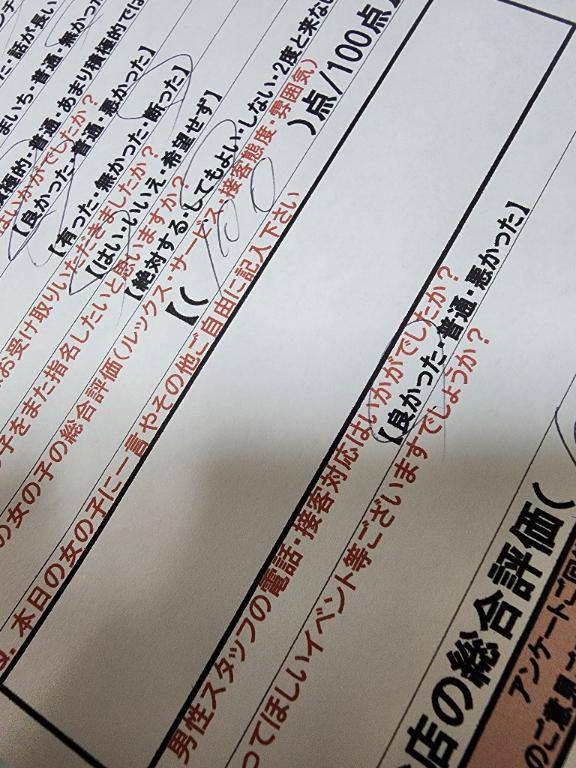 話が長い
まいち・普通・無かっ
普通・あまり積極的では
はいかがでしたか？
【良かった・普通・悪かった】
お受け取りいただきましたか？
【有った・無かった・断った】
子をまた指名したいと思いますか？
【はい・いいえ・希望せず】
の女の子の総合評価(ルックス・サービス・接客態度・雰囲気)
【絶対する・してもよい・しない・2度と来ない
【( 100 )点/100点】
本日の女の子に一言やその他ご自由に記入下さい
男性スタッフの電話・接客対応はいかがでしたか？
【良かった・普通・悪かった】
ってほしいイベント等ございますでしょうか？
店の総合評価(
アンケートご
のご意見